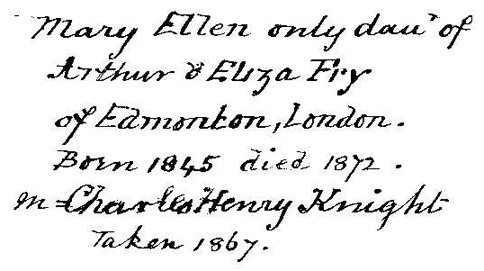 Mary Ellen only dauʳ of
Arthur & Eliza Fry
of Edmonton, London.
Born 1845 died 1872.
m = Charles Henry Knight
Taken 1867.